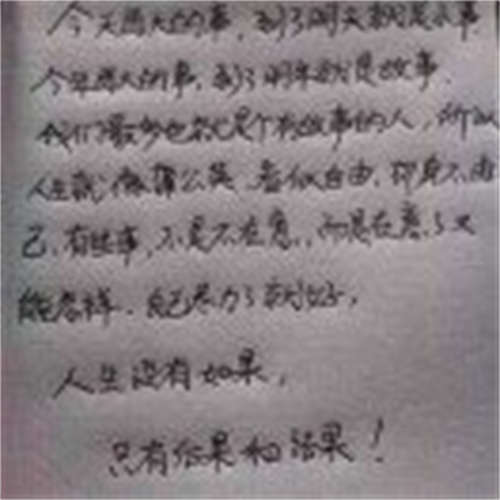 今天再大的事，到了明天就是小事
今年再大的事，到了明年就是故事，
我们最多也就是个有故事的人，所以
人生就像蒲公英，看似自由，却身不由
己，有些事，不是不在意，而是在意了又
能怎样，自己尽力了就好，
人生没有如果，
只有后果和结果！